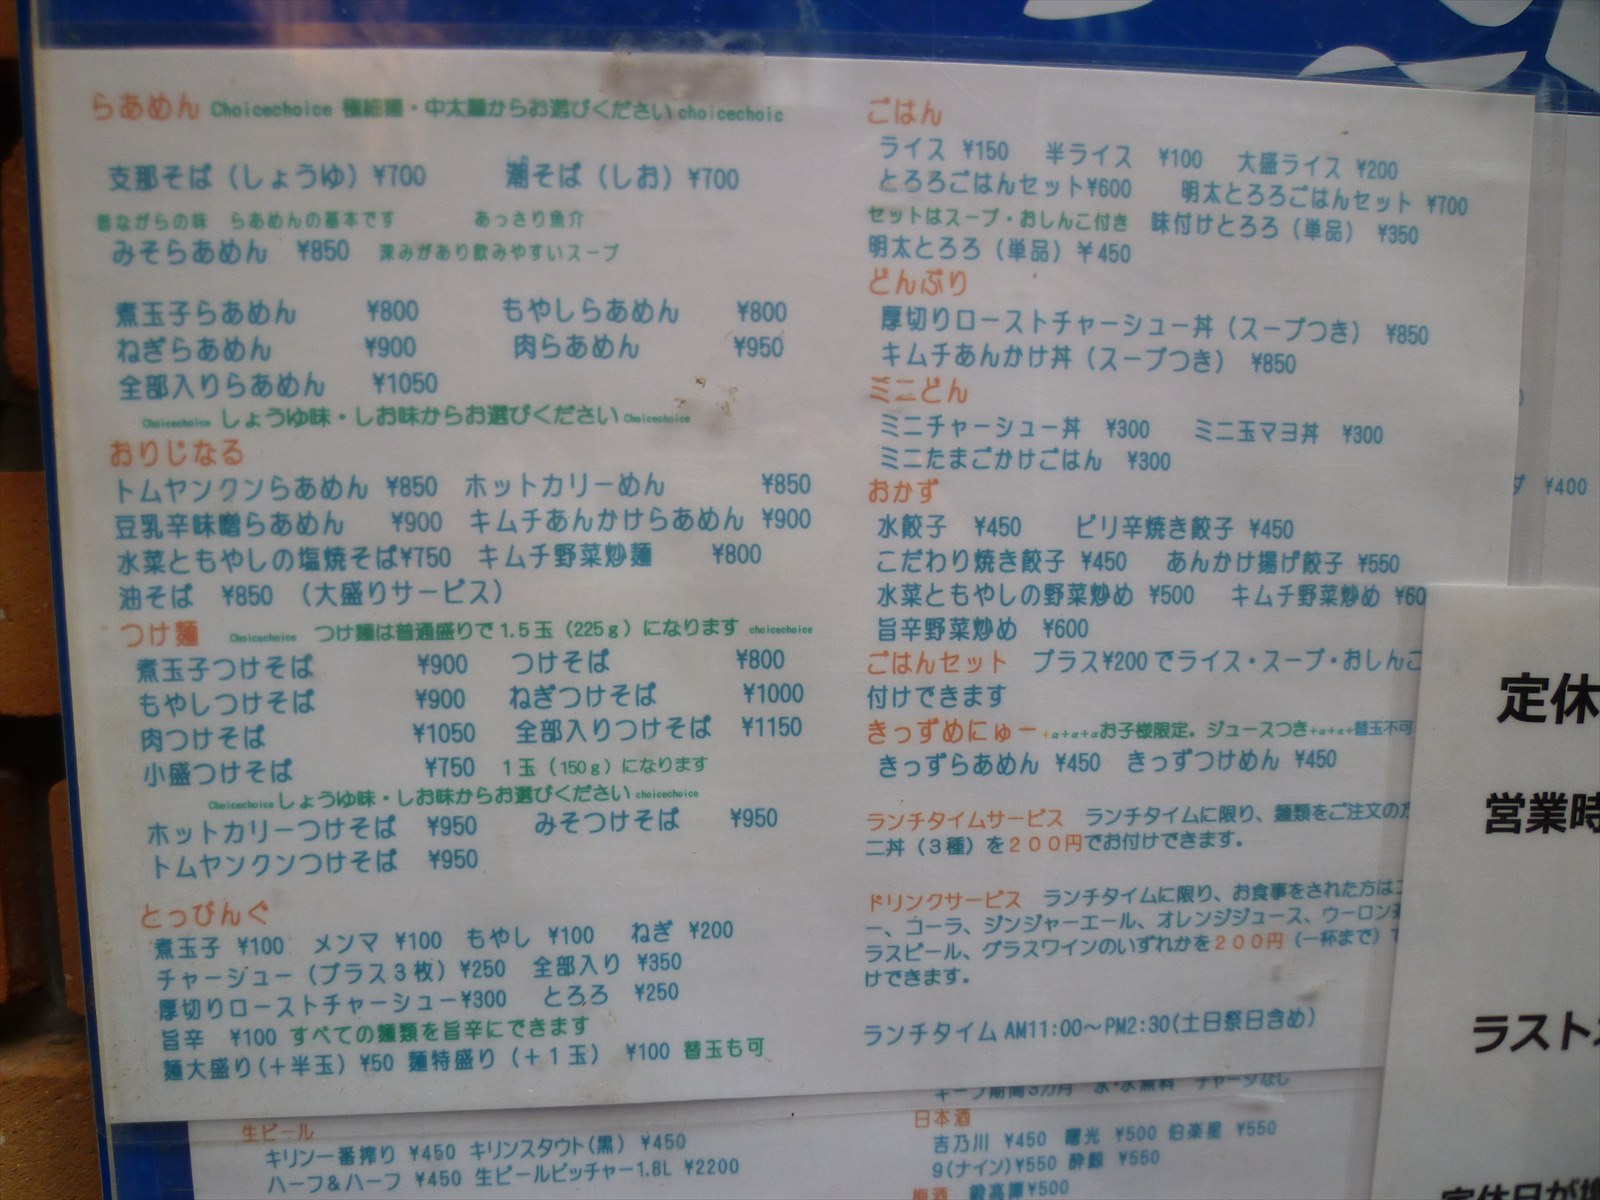 らあめん Choicechoice 極細麺・中太麺からお選びください choicechoic
支那そば（しょうゆ）¥700 潮そば（しお）¥700
昔ながらの味 らあめんの基本です あっさり魚介
みそらあめん ¥850 深みがあり飲みやすいスープ
煮玉子らあめん ¥800 もやしらあめん ¥800
ねぎらあめん ¥900 肉らあめん ¥950
全部入りらあめん ¥1050
Choicechoice しょうゆ味・しお味からお選びください Choicechoice
おりじなる
トムヤンクンらあめん ¥850 ホットカリーめん ¥850
豆乳辛味噌らあめん ¥900 キムチあんかけらあめん ¥900
水菜ともやしの塩焼そば¥750 キムチ野菜炒麺 ¥800
油そば ¥850 （大盛りサービス）
つけ麺 Choicechoice つけ麺は普通盛りで1.5玉（225g）になります choicechoice
煮玉子つけそば ¥900 つけそば ¥800
もやしつけそば ¥900 ねぎつけそば ¥1000
肉つけそば ¥1050 全部入りつけそば ¥1150
小盛つけそば ¥750 1玉（150g）になります
Choicechoice しょうゆ味・しお味からお選びください choicechoice
ホットカリーつけそば ¥950 みそつけそば ¥950
トムヤンクンつけそば ¥950
とっぴんぐ
煮玉子 ¥100 メンマ ¥100 もやし ¥100 ねぎ ¥200
チャージュー（プラス3枚）¥250 全部入り ¥350
厚切りローストチャーシュー¥300 とろろ ¥250
旨辛 ¥100 すべての麺類を旨辛にできます
麺大盛り（＋半玉）¥50 麺特盛り（＋1玉） ¥100 替玉も可
ごはん
ライス ¥150 半ライス ¥100 大盛ライス ¥200
とろろごはんセット¥600 明太とろろごはんセット ¥700
セットはスープ・おしんこ付き 味付けとろろ（単品） ¥350
明太とろろ（単品）¥450
どんぶり
厚切りローストチャーシュー丼（スープつき） ¥850
キムチあんかけ丼（スープつき） ¥850
ミニどん
ミニチャーシュー丼 ¥300 ミニ玉マヨ丼 ¥300
ミニたまごかけごはん ¥300
おかず
水餃子 ¥450 ピリ辛焼き餃子 ¥450
こだわり焼き餃子 ¥450 あんかけ揚げ餃子 ¥550
水菜ともやしの野菜炒め ¥500 キムチ野菜炒め ¥60
旨辛野菜炒め ¥600
ごはんセット プラス¥200でライス・スープ・おしんこ
付けできます
きっずめにゅー +α+α+αお子様限定。ジュースつき+α+α+替玉不可
きっずらあめん ¥450 きっずつけめん ¥450
ランチタイムサービス ランチタイムに限り、麺類をご注文の方
二丼（3種）を200円でお付けできます。
ドリンクサービス ランチタイムに限り、お食事をされた方は
ー、コーラ、ジンジャーエール、オレンジジュース、ウーロン茶
ラスビール、グラスワインのいずれかを200円（一杯まで）で
けできます。
ランチタイム AM11:00～PM2:30(土日祭日含め)
キープ期間3カ月 氷・水無料 チャージなし
生ビール
キリン一番搾り ¥450 キリンスタウト(黒) ¥450
ハーフ＆ハーフ ¥450 生ビールピッチャー1.8L ¥2200
日本酒
吉乃川 ¥450 曙光 ¥500 伯楽星 ¥550
9(ナイン)¥550 酔鯨 ¥550
梅酒 ¥500
ダ ¥400
定休
営業時
ラスト
定休日が